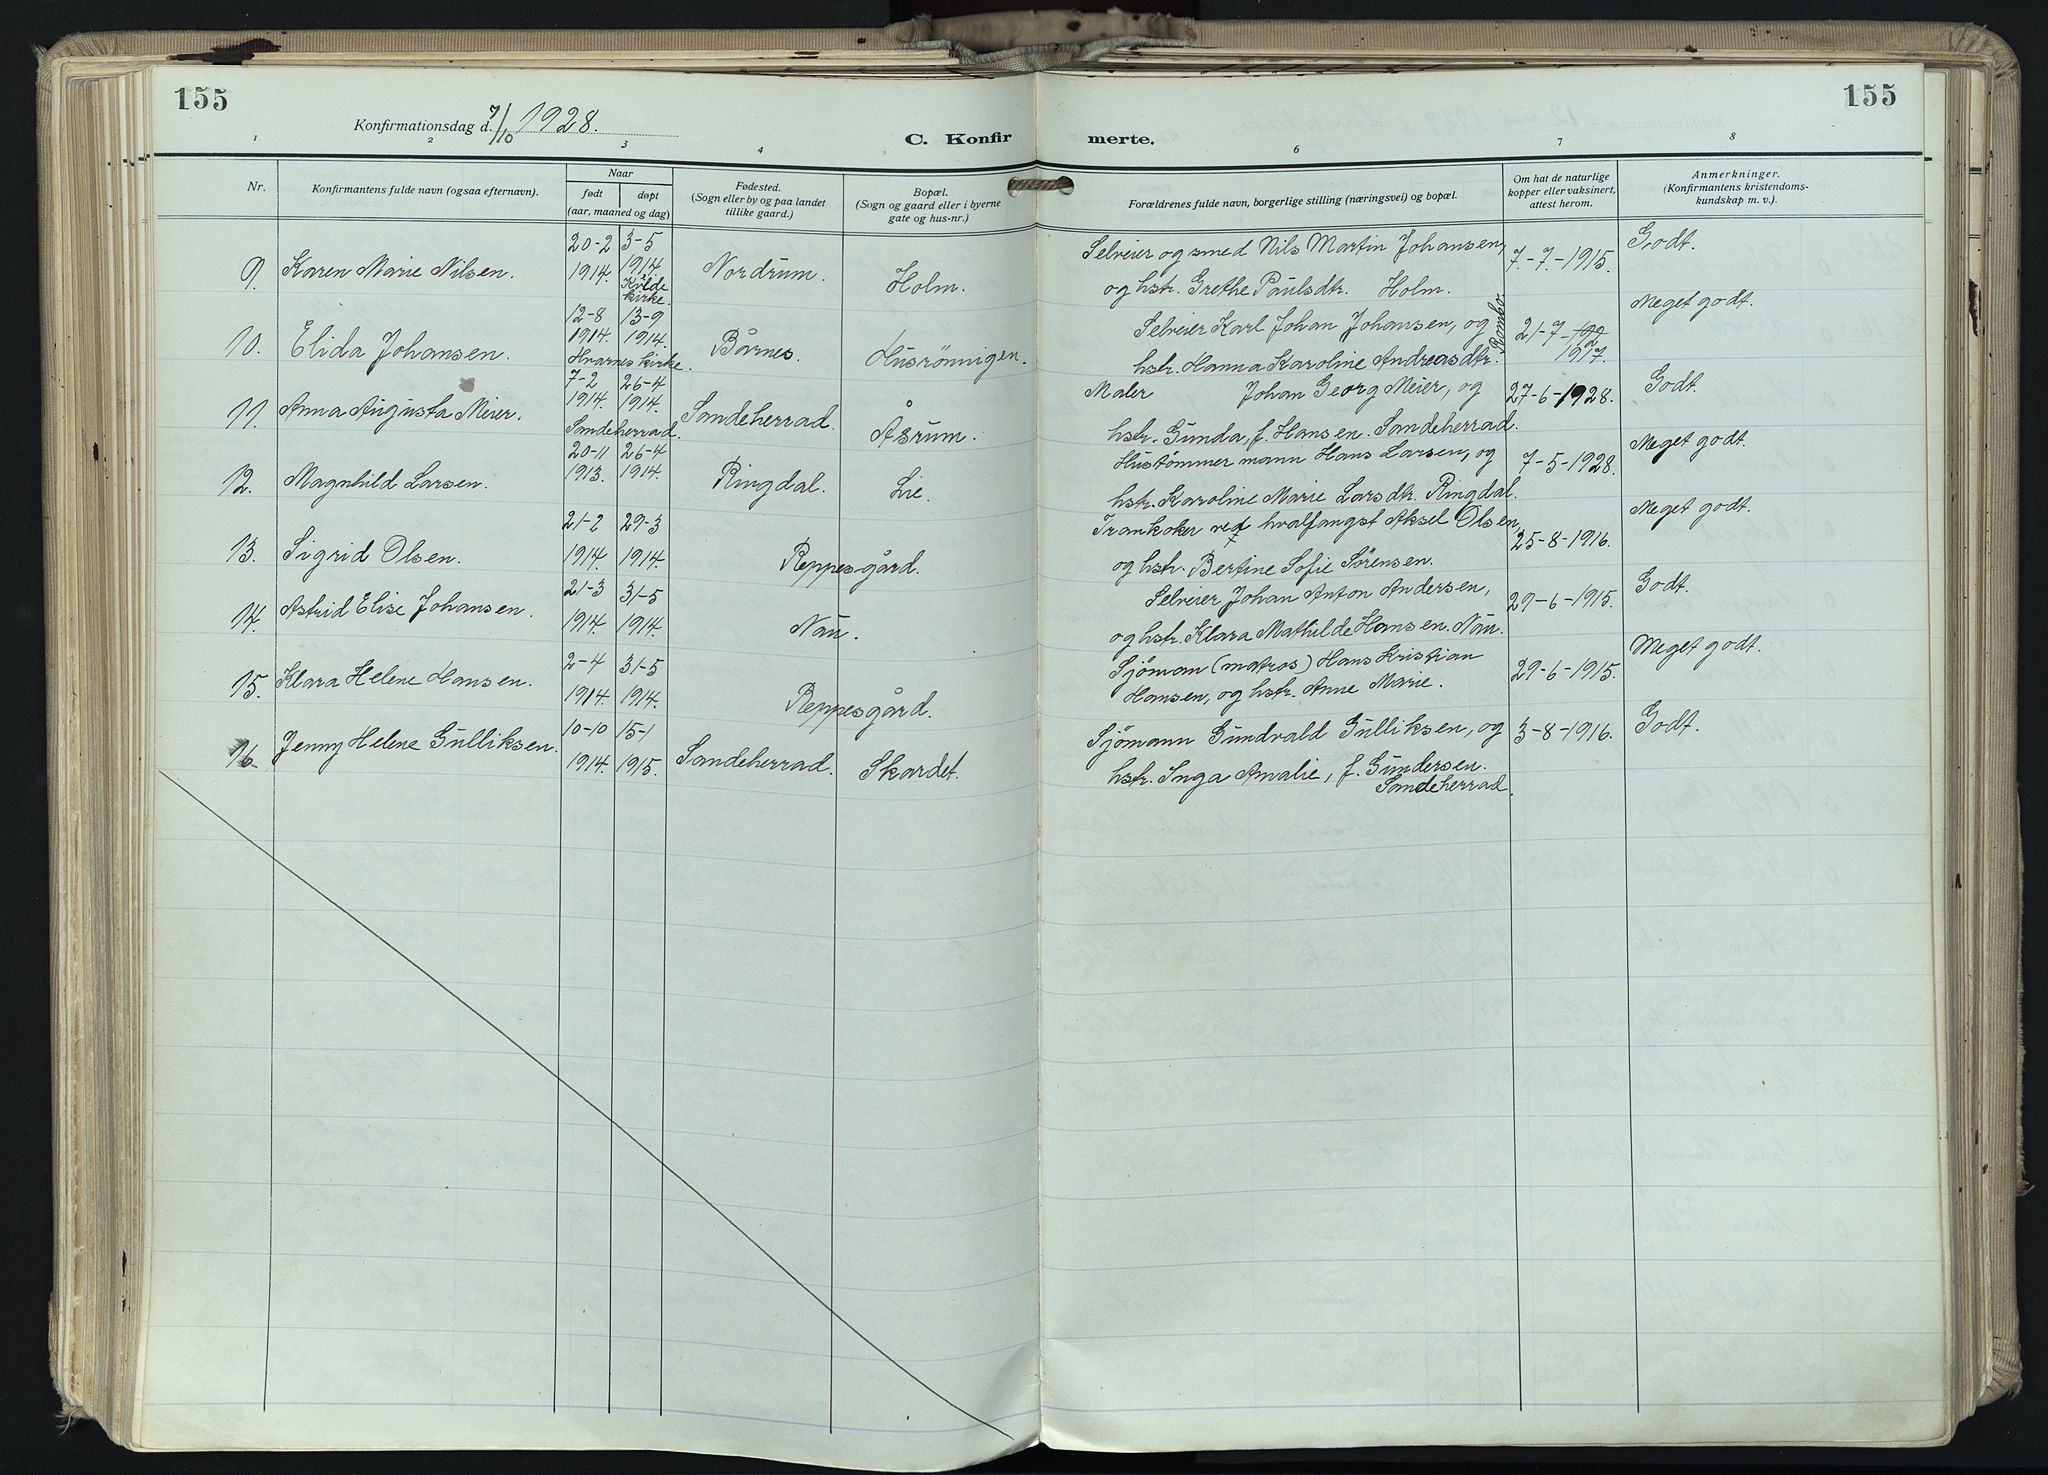 155
155
Konfirmationsdag d. 7/10 1928.
C. Konfir merte.
1 2 3 4 6 7 8
Nr.
Konfirmantens fulde navn (ogsaa efternavn).
Naar
født døpt
(aar, maaned og dag)
Fødested.
(Sogn eller by og paa landet
tillike gaard.)
Bopæl.
(Sogn og gaard eller i byerne
gate og hus-nr.)
Forældrenes fulde navn, borgerlige stilling (næringsvei) og bopæl.
Om hat de naturlige
kopper eller vaksinert,
attest herom.
Anmerkninger.
(Konfirmantens kristendoms-
kundskap m. v.)
20-2 3-5 Selveier og smed Nils Martin Johansen, Godt.
9. Karen Marie Nilsen. 1914. 1914. Nordrum. Holm. og hstr. Grethe Paulsdtr. Holm. 7.-7.-1915.
Kvelde
kirke.
12-8 13-9 Selveier Karl Johan Johansen, og Rombo. Meget godt.
10. Elida Johansen. 1914. 1914. Bårnes. Husrönnigen. hstr. Hanna Karoline Andreasdtr. 21-7-192
1917.
Hvarnes kirke.
7-2 26-4 Maler Johan Georg Meier, og Godt.
11. Anna Augusta Meier. 1914. 1914. Sandeherrad. Åsrum. hstr. Gunda, f. Hansen. Sandeherrad. 27-6-1928.
Sandeherrad.
20-11 26-4 Hustömmermann Hans Larsen, og Meget godt.
12. Magnhild Larsen. 1913. 1914. Ringdal. Lie. hstr. Karoline Marie Larsdtr. Ringdal. 7-5-1928.
21-2 29-3 Trankoker ved hvalfangst Aksel Olsen, Meget godt.
13. Sigrid Olsen. 1914. 1914. Reppesgård. og hstr. Bertine Sofie Sörensen. 25-8-1916.
21-3 31-5 Selveier Johan Anton Andersen, Godt.
14. Astrid Elise Johansen. 1914. 1914. Nau. og hstr. Klara Mathilde Hansen. Nau. 29-6-1915.
2-4 31-5 Sjöman (matros) Hans Kristian Meget godt.
15. Klara Helene Hansen. 1914. 1914. Reppesgård. Hansen, og hstr. Anne Marie. 29-6-1915.
10-10 15-1 Sjömann Gundvald Gulliksen, og Godt.
16. Jenny Helene Gulliksen. 1914. 1915. Sandeherrad. Skardet. hstr. Inga Amalie, f. Gundersen. 3-8-1916.
Sandeherrad.